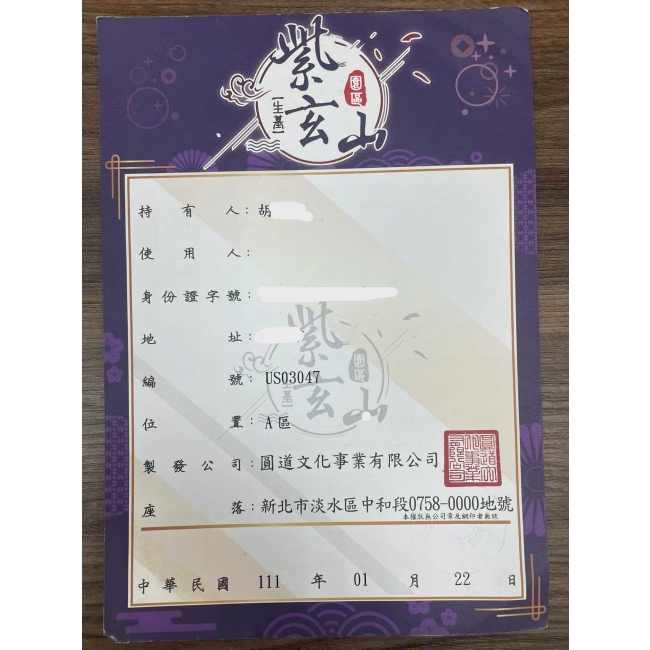 紫玄山
園區
【生基】
持有人：胡
使用人：
身份證字號：
地址：
編號：US03047
位置：A區
製發公司：圓道文化事業有限公司
座落：新北市淡水區中和段0758-0000地號
本權狀無公司章及鋼印者無效
中華民國 111 年 01 月 22 日
紫玄山
園區
【生基】